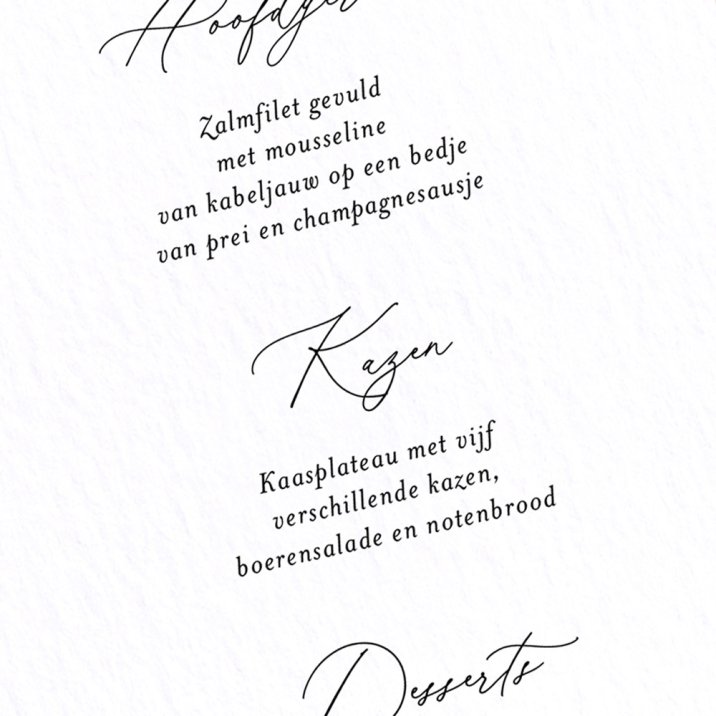 Zalmfilet gevuld
met mousseline
van kabeljauw op een bedje
van prei en champagnesausje
Kazen
Kaasplateau met vijf
verschillende kazen,
boerensalade en notenbrood
Desserts